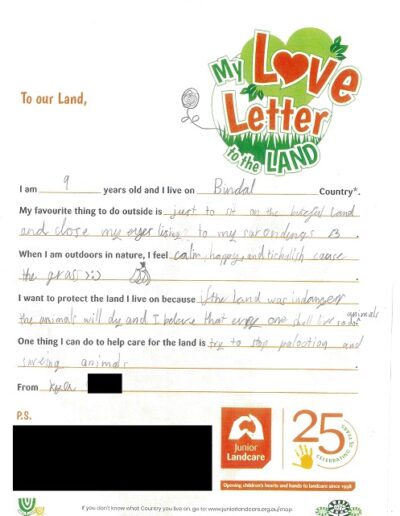 My Love
Letter
to the LAND
To our Land,
I am 9 years old and I live on Bindal Country*.
My favourite thing to do outside is just to sit on the land
and close my eyes to my
When I am outdoors in nature, I feel calm, happy, and tichelish cause
the grass >:)
I want to protect the land I live on because if the land was in danger
the animals will dy and I beleve that every one shall live so do animals
One thing I can do to help care for the land is try to stop palootion and
saveing animals
From
P.S.
Junior
Landcare
25 YEARS
CELEBRATING
Opening children's hearts and hands to landcare since 1998
If you don't know what Country you live on, go to: www.juniorlandcare.org.au/map